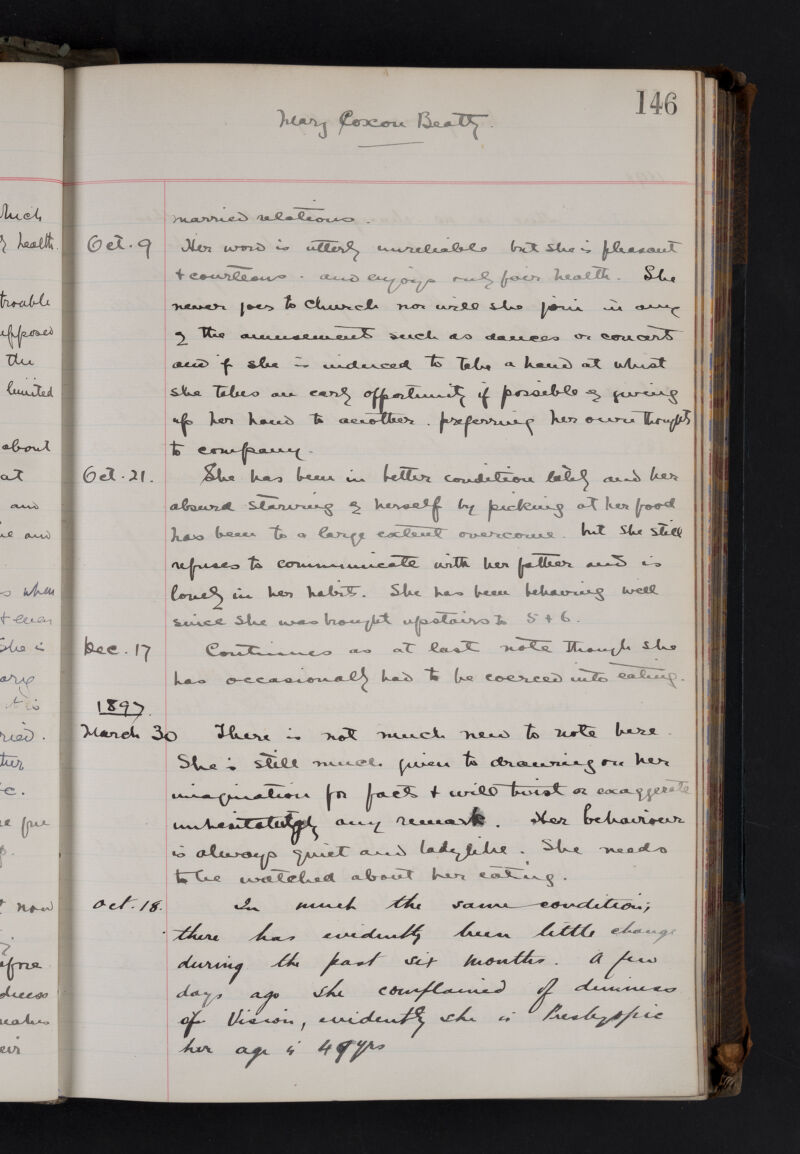 146
Mary Coxon Beatty.
married relations.
Oct. 9 Her word is utterly unreliable but she is pleasant
& courteous. and enjoys only fair health. She
never goes to church nor will she join in any
of the amusement such as dances or concert
and if she is induced to take a hand at whist
she takes an early opportunity if possible of giving
up her hand to another. preferring her own thoughts
to company.
Oct. 21. She has been in better condition lately and her
absurd starving of herself by picking at her food
has been to a large extent overcome. but she still
refuses to communicate with her father and is
lonely in her habits. She has been behaving well
since she was brought upstairs to 5 & 6.
Dec. 17 Continues as at last note though she
has occasionally had to be coerced into eating.
1897.
March 30 There is not much new to note here.
She is still much given to drawing on her
imagination for facts & will twist or exaggerate
unhesitatingly any remark. Her behaviour
is always quiet and ladylike. She needs
to be watched about her eating.
Oct. 18. In much the same condition;
there has evidently been little change
during the past six months. A few
days ago she complained of dimness
of Vision, evidently she is Presbyopic
her age is 49 yrs
which
health.
trouble
supposed
the
limited
about
at
and
when
She is
now